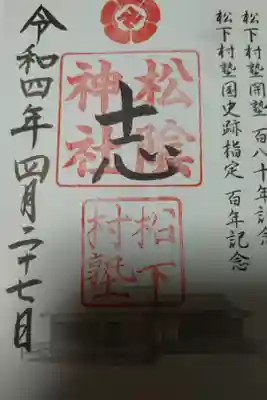 松下村塾開塾 百八十年記念
松下村塾国史跡指定 百年記念
松陰
神社
志
松下
村塾
令和四年 四月二十七日